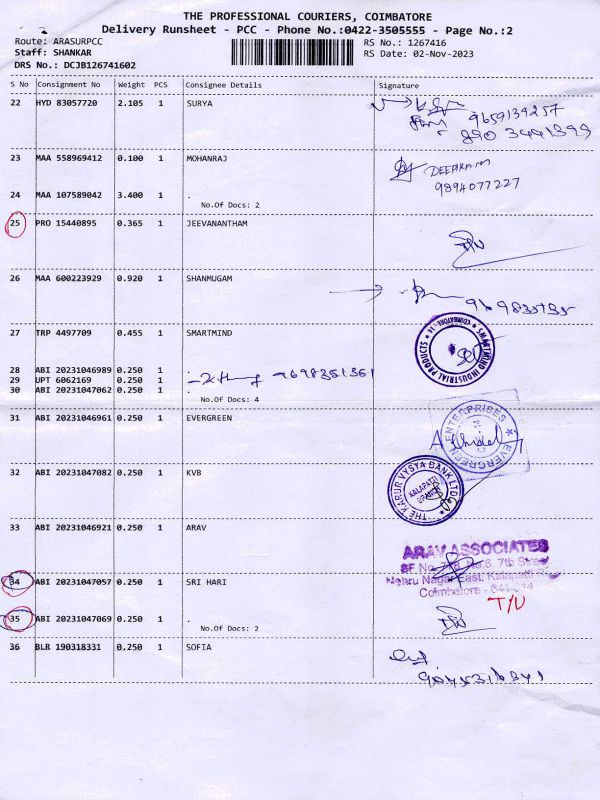 THE PROFESSIONAL COURIERS, COIMBATORE
Delivery Runsheet - PCC - Phone No.:0422-3505555 - Page No.:2
Route: ARASURPCC
RS No.: 1267416
Staff: SHANKAR
RS Date: 02-Nov-2023
DRS No.: DCJB126741602
S No Consignment No Weight PCS Consignee Details Signature
22 HYD 83057720 2.105 1 SURYA
9659139257
890 3491399
23 MAA 558969412 0.100 1 MOHANRAJ
DEEPAKRAM
9894077227
24 MAA 107589042 3.400 1 .
No.Of Docs: 2
25 PRO 15440895 0.365 1 JEEVANANTHAM
26 MAA 600223929 0.920 1 SHANMUGAM
27 TRP 4497709 0.455 1 SMARTMIND
SMARTMIND INDUSTRIAL PRODUCTS
COIMBATORE - 14
28 ABI 20231046989 0.250 1
29 UPT 6062169 0.250 1
9698351351
30 ABI 20231047062 0.250 1 .
No.Of Docs: 4
31 ABI 20231046961 0.250 1 EVERGREEN
EVERGREEN ENTERPRISES
32 ABI 20231047082 0.250 1 KVB
THE KARUR VYSYA BANK LTD
KALAPATTI
BRANCH
33 ABI 20231046921 0.250 1 ARAV
ARAV ASSOCIATES
7th Street
Nehru Nagar East, Kalapatti
Coimbatore - 641 014
34 ABI 20231047057 0.250 1 SRI HARI
T/U
35 ABI 20231047069 0.250 1 .
No.Of Docs: 2
36 BLR 190318331 0.250 1 SOFIA